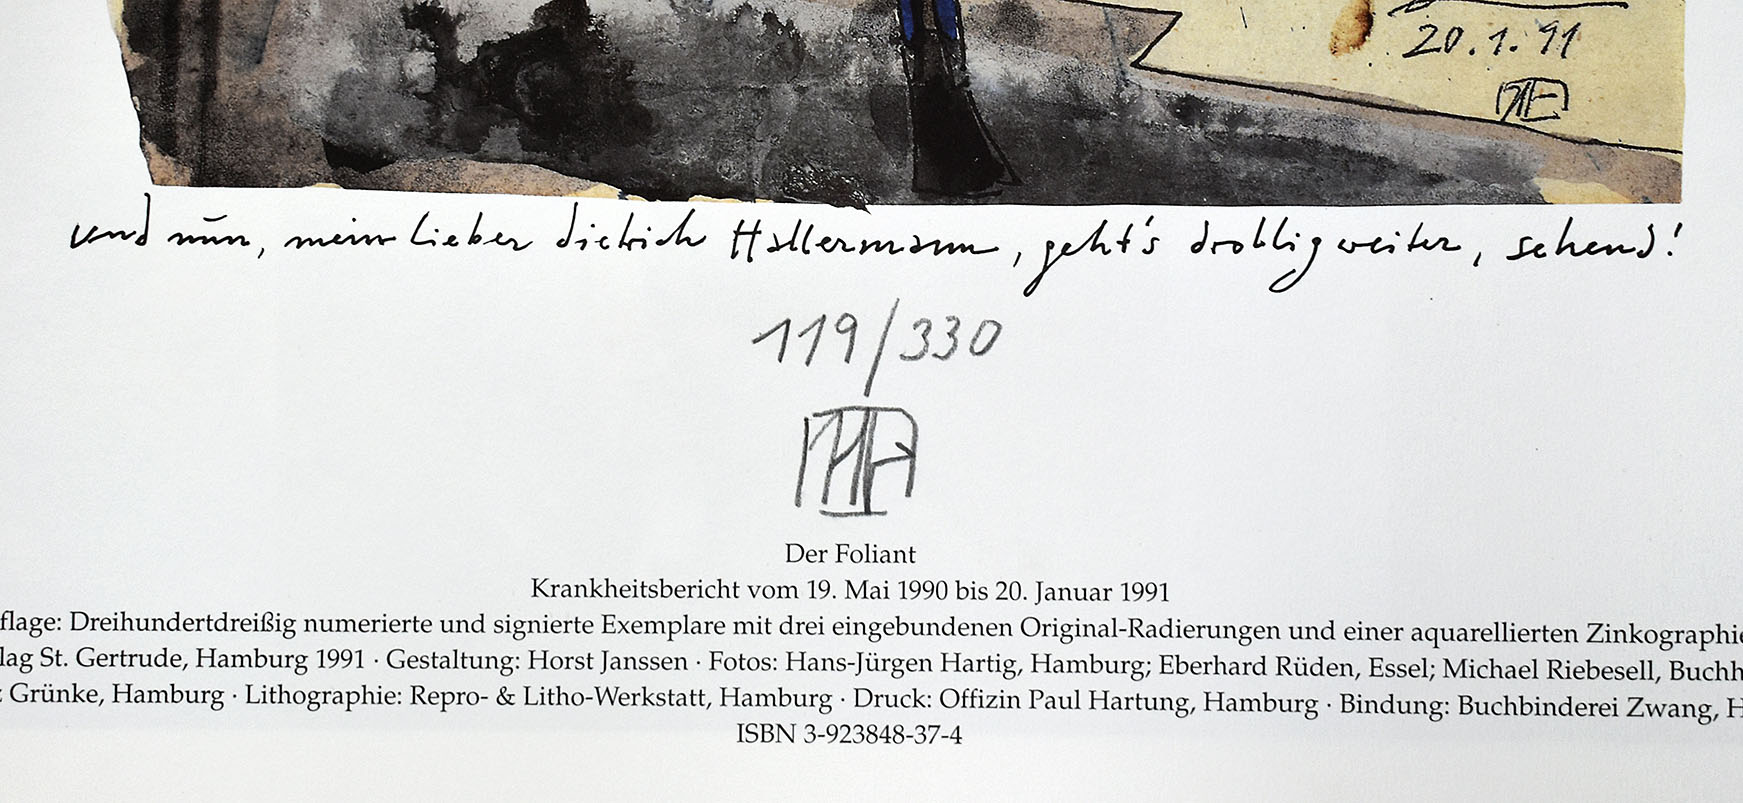 20.1.91
und nun, mein lieber dietrich Hallermann, geht's drollig weiter, sehend!
119/330
Der Foliant
Krankheitsbericht vom 19. Mai 1990 bis 20. Januar 1991
flage: Dreihundertdreißig numerierte und signierte Exemplare mit drei eingebundenen Original-Radierungen und einer aquarellierten Zinkographie
lag St. Gertrude, Hamburg 1991 · Gestaltung: Horst Janssen · Fotos: Hans-Jürgen Hartig, Hamburg; Eberhard Rüden, Essel; Michael Riebesell, Buchh
Grünke, Hamburg · Lithographie: Repro- & Litho-Werkstatt, Hamburg · Druck: Offizin Paul Hartung, Hamburg · Bindung: Buchbinderei Zwang, H
ISBN 3-923848-37-4